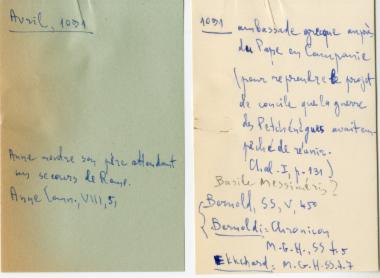 Avril, 1091
Anne montre son père attendant
un secours de Rome.
Anne Comn., VIII, 5,
1091 ambassade grecque auprès
du Pape en Campanie
(pour reprendre le projet
de concile que la guerre
des Petchénègues avait em-
pêché de réunir.
Chal. I, p. 131)
Basile Messimeris?
Bernold, SS, V, 450
Bernoldi: Chronicon
M.G.H., SS. t. 5
Ekkehard: M.G.H. SS. t. 7